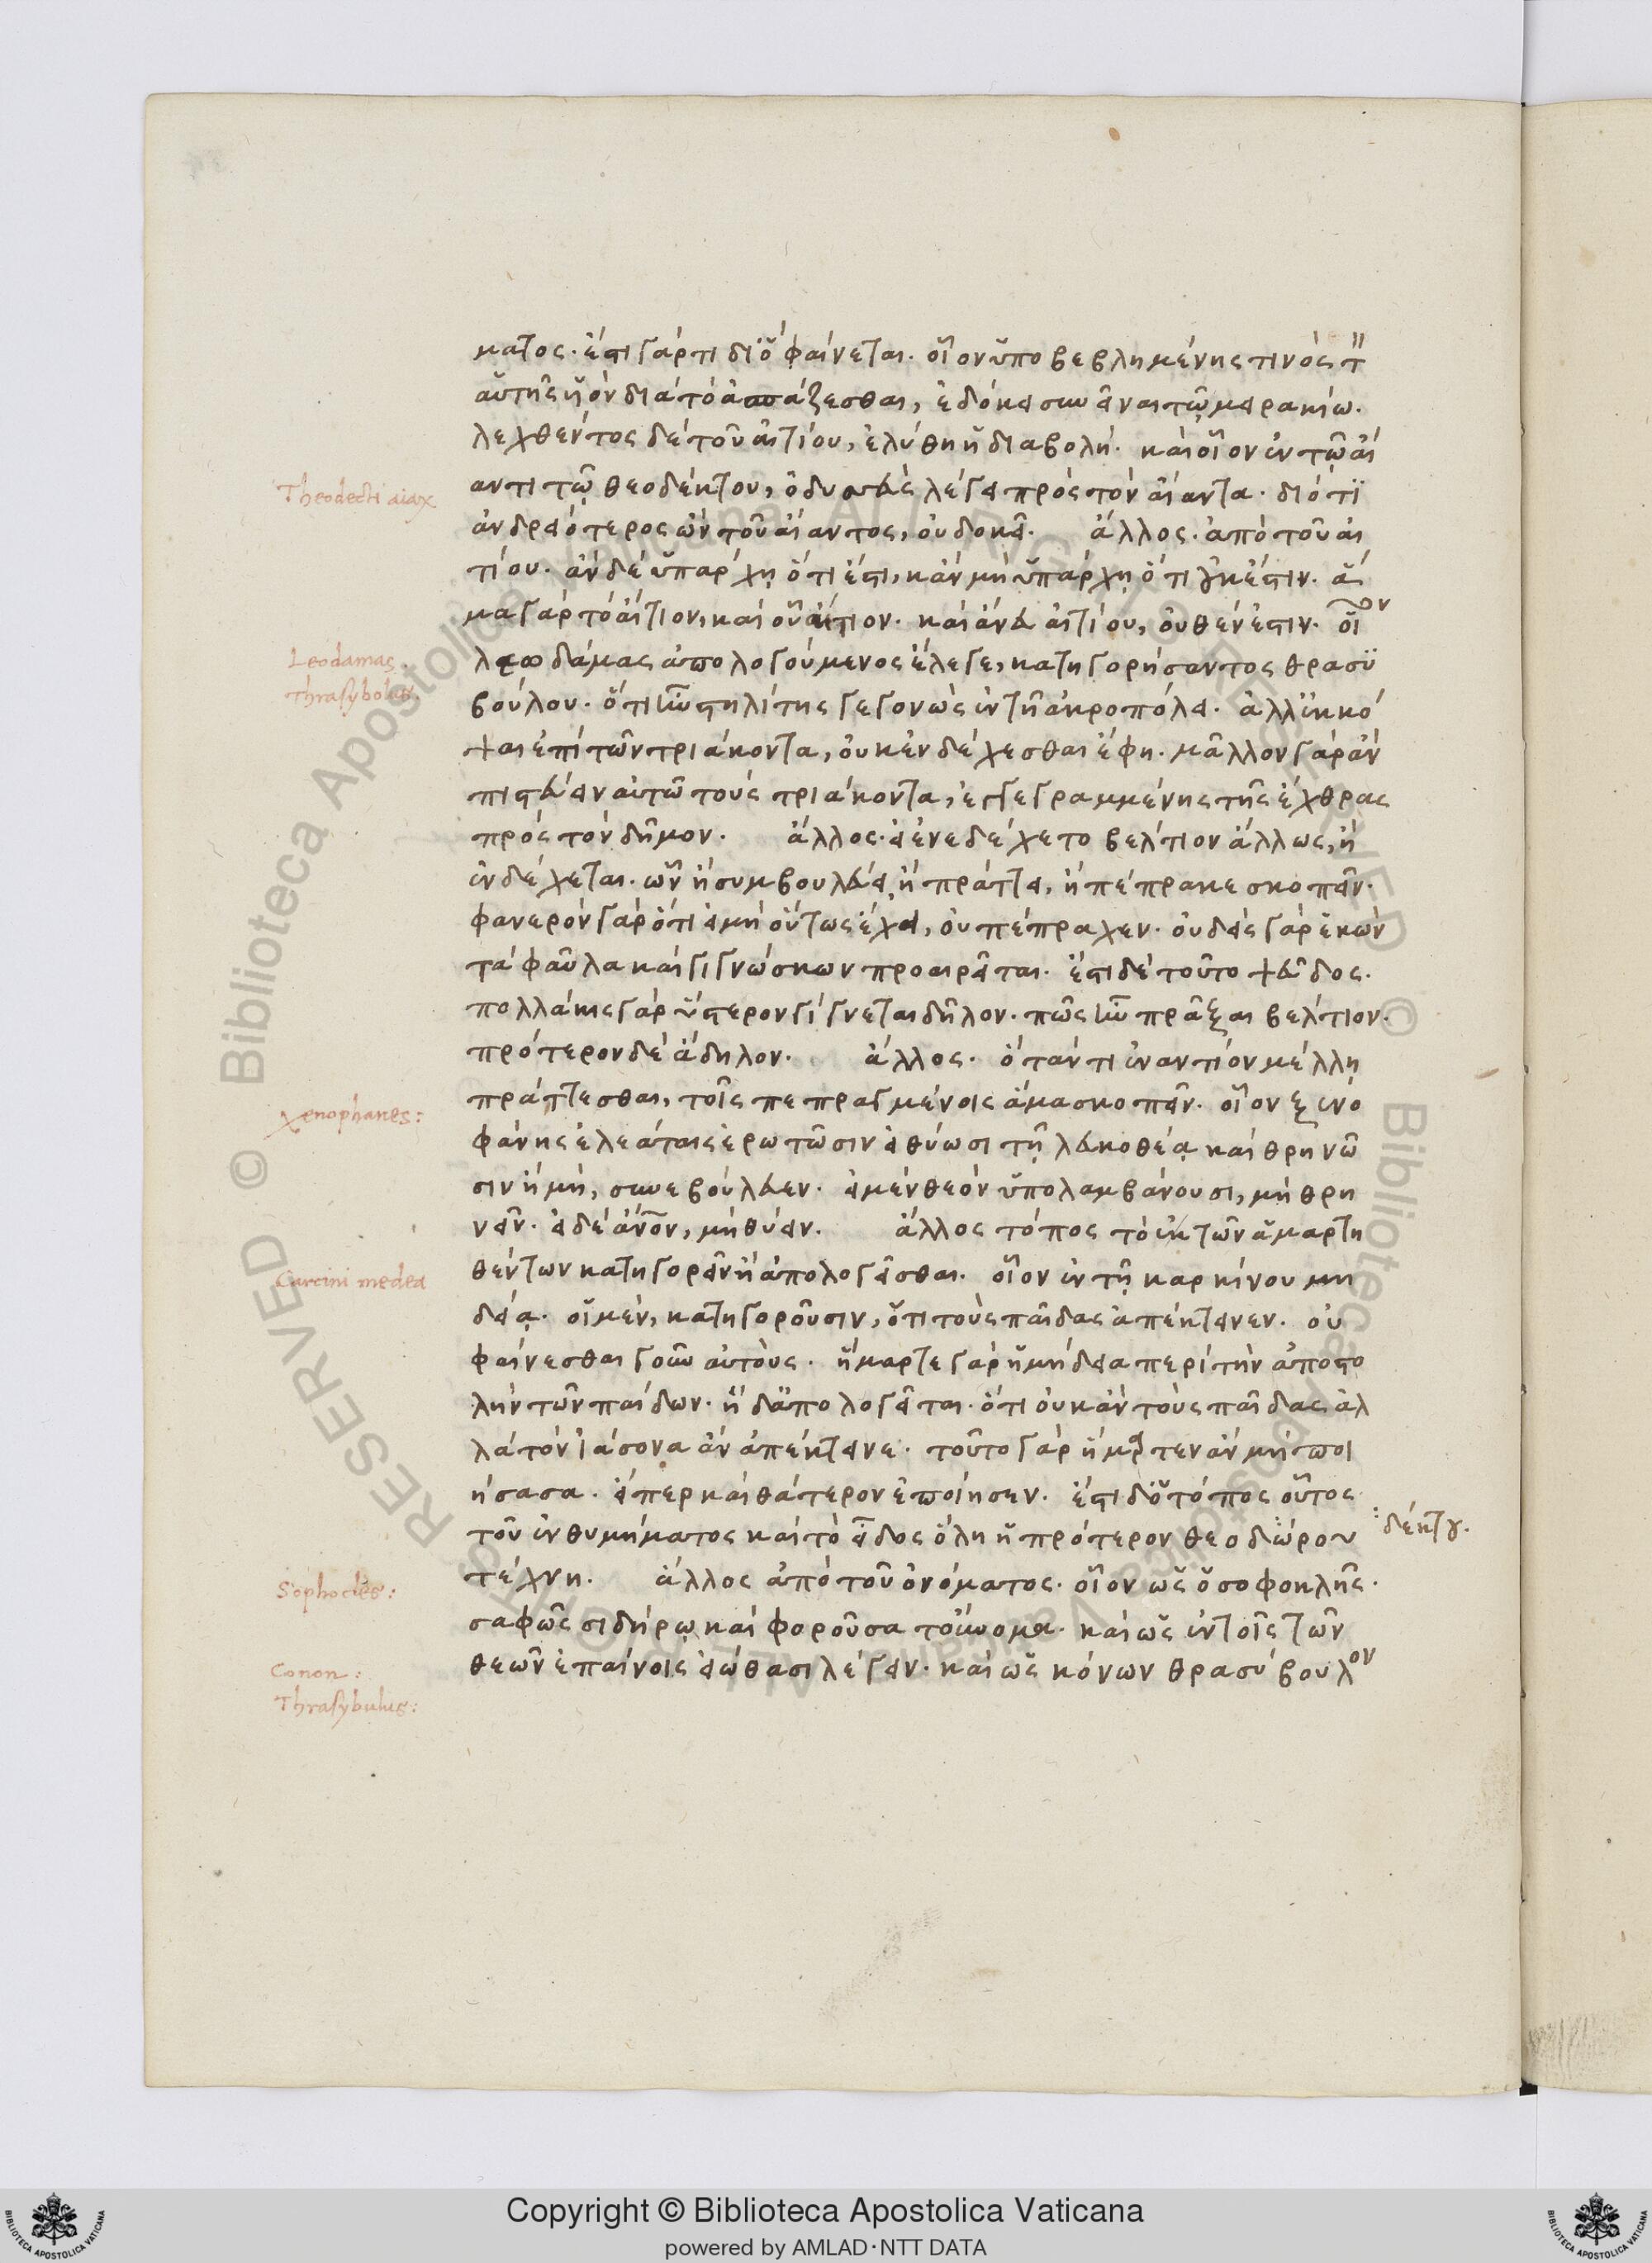 ματος. ἔστι γάρ τι διὸ φαίνεται. οἷον ὑποβεβλημένης τινὸς τ
αὑτῆς υἱὸν διὰ τὸ ἀσπάζεσθαι, ἐδόκει συνεῖναι τῷ μειρακίω.
λεχθέντος δὲ τοῦ αἰτίου, ἐλύθη ἡ διαβολή. καὶ οἷον ἐν τῷ αἴ
Theodecti aiax
αντι τῷ θεοδέκτου, ὀδυσσεὺς λέγει πρὸς τὸν αἴαντα. διότι
ἀνδρειότερος ὢν τοῦ αἴαντος, οὐ δοκεῖ. ἄλλος. ἀπὸ τοῦ αἰ
τίου. ἂν δὲ ὑπάρχῃ ὅτι ἔστι, κἂν μὴ ὑπάρχῃ ὅτι οὐκ ἔστιν. ἅ
μα γὰρ τὸ αἴτιον, καὶ οὗ αἴτιον. καὶ ἄνευ αἰτίου, οὐθέν ἐστιν. οἷον
Leodamas.
Thrasybolus.
λεωδάμας ἀπολογούμενος ἔλεγε, κατηγορήσαντος θρασυ
βούλου. ὅτι ἦν στηλίτης γεγονὼς ἐν τῆ ἀκροπόλει. ἀλλ' ἐκκό
ψαι ἐπὶ τῶν τριάκοντα, οὐκ ἐνδέχεσθαι ἔφη. μᾶλλον γὰρ ἂν
πιστεύειν αὐτῶ τοὺς τριάκοντα, ἐγγεγραμμένης τῆς ἔχθρας
πρὸς τὸν δῆμον. ἄλλος. εἰ ἐνεδέχετο βέλτιον ἄλλως, ἢ
ἐνδέχεται. ὧν ἢ συμβουλεύει, ἢ πράττει, ἢ πέπραχε σκοπεῖν.
φανερὸν γὰρ ὅτι εἰ μὴ οὕτως ἔχει, οὐ πέπραχεν. οὐδεὶς γὰρ ἑκὼν
τὰ φαῦλα καὶ γιγνώσκων προαιρεῖται. ἔστι δὲ τοῦτο ψεῦδος.
πολλάκις γὰρ ὕστερον γίγνεται δῆλον. πῶς ἦν πρᾶξαι βέλτιον.
πρότερον δὲ ἄδηλον. ἄλλος. ὅταν τι ἐναντίον μέλλῃ
Xenophanes:
πράττεσθαι, τοῖς πεπραγμένοις ἅμα σκοπεῖν. οἷον ξενο
φάνης ἐλεάταις ἐρωτῶσιν εἰ θύωσι τῇ λευκοθέᾳ καὶ θρηνῶ
σιν ἢ μὴ, συνεβούλευεν. εἰ μὲν θεὸν ὑπολαμβάνουσι, μὴ θρη
νεῖν. εἰ δὲ ἄνον, μὴ θύειν. ἄλλος τόπος τὸ ἐκ τῶν ἁμαρτη
Carcini medea
θέντων κατηγορεῖν ἢ ἀπολογεῖσθαι. οἷον ἐν τῇ καρκίνου μη
δείᾳ. οἱ μὲν, κατηγοροῦσιν, ὅτι τοὺς παῖδας ἀπέκτεινεν. οὐ
φαίνεσθαι γοῦν αὐτοὺς. ἥμαρτε γὰρ ἡ μήδεια περὶ τὴν ἀποστο
λὴν τῶν παίδων. ἡ δ' ἀπολογεῖται. ὅτι οὐκ ἂν τοὺς παῖδας ἀλ
λὰ τὸν ἰάσονα ἂν ἀπέκτεινε. τοῦτο γὰρ ἥμαρτεν ἂν μὴ ποι
ήσασα. εἴπερ καὶ θάτερον ἐποίησεν. ἔστι δ' ὁ τόπος οὗτος
τοῦ ἐνθυμήματος καὶ τὸ εἶδος ὅλη ἡ πρότερον θεοδώρου
δέκτου.
Sophocles:
τέχνη. ἄλλος ἀπὸ τοῦ ὀνόματος. οἷον ὡς ὁ σοφοκλῆς.
σαφῶς σιδήρῳ καὶ φοροῦσα τοὔνομα. καὶ ὡς ἐν τοῖς τῶν
Conon:
Thrasybulus:
θεῶν ἐπαίνοις εἰώθασι λέγειν. καὶ ὡς κόνων θρασύβουλον
Copyright © Biblioteca Apostolica Vaticana
powered by AMLAD·NTT DATA